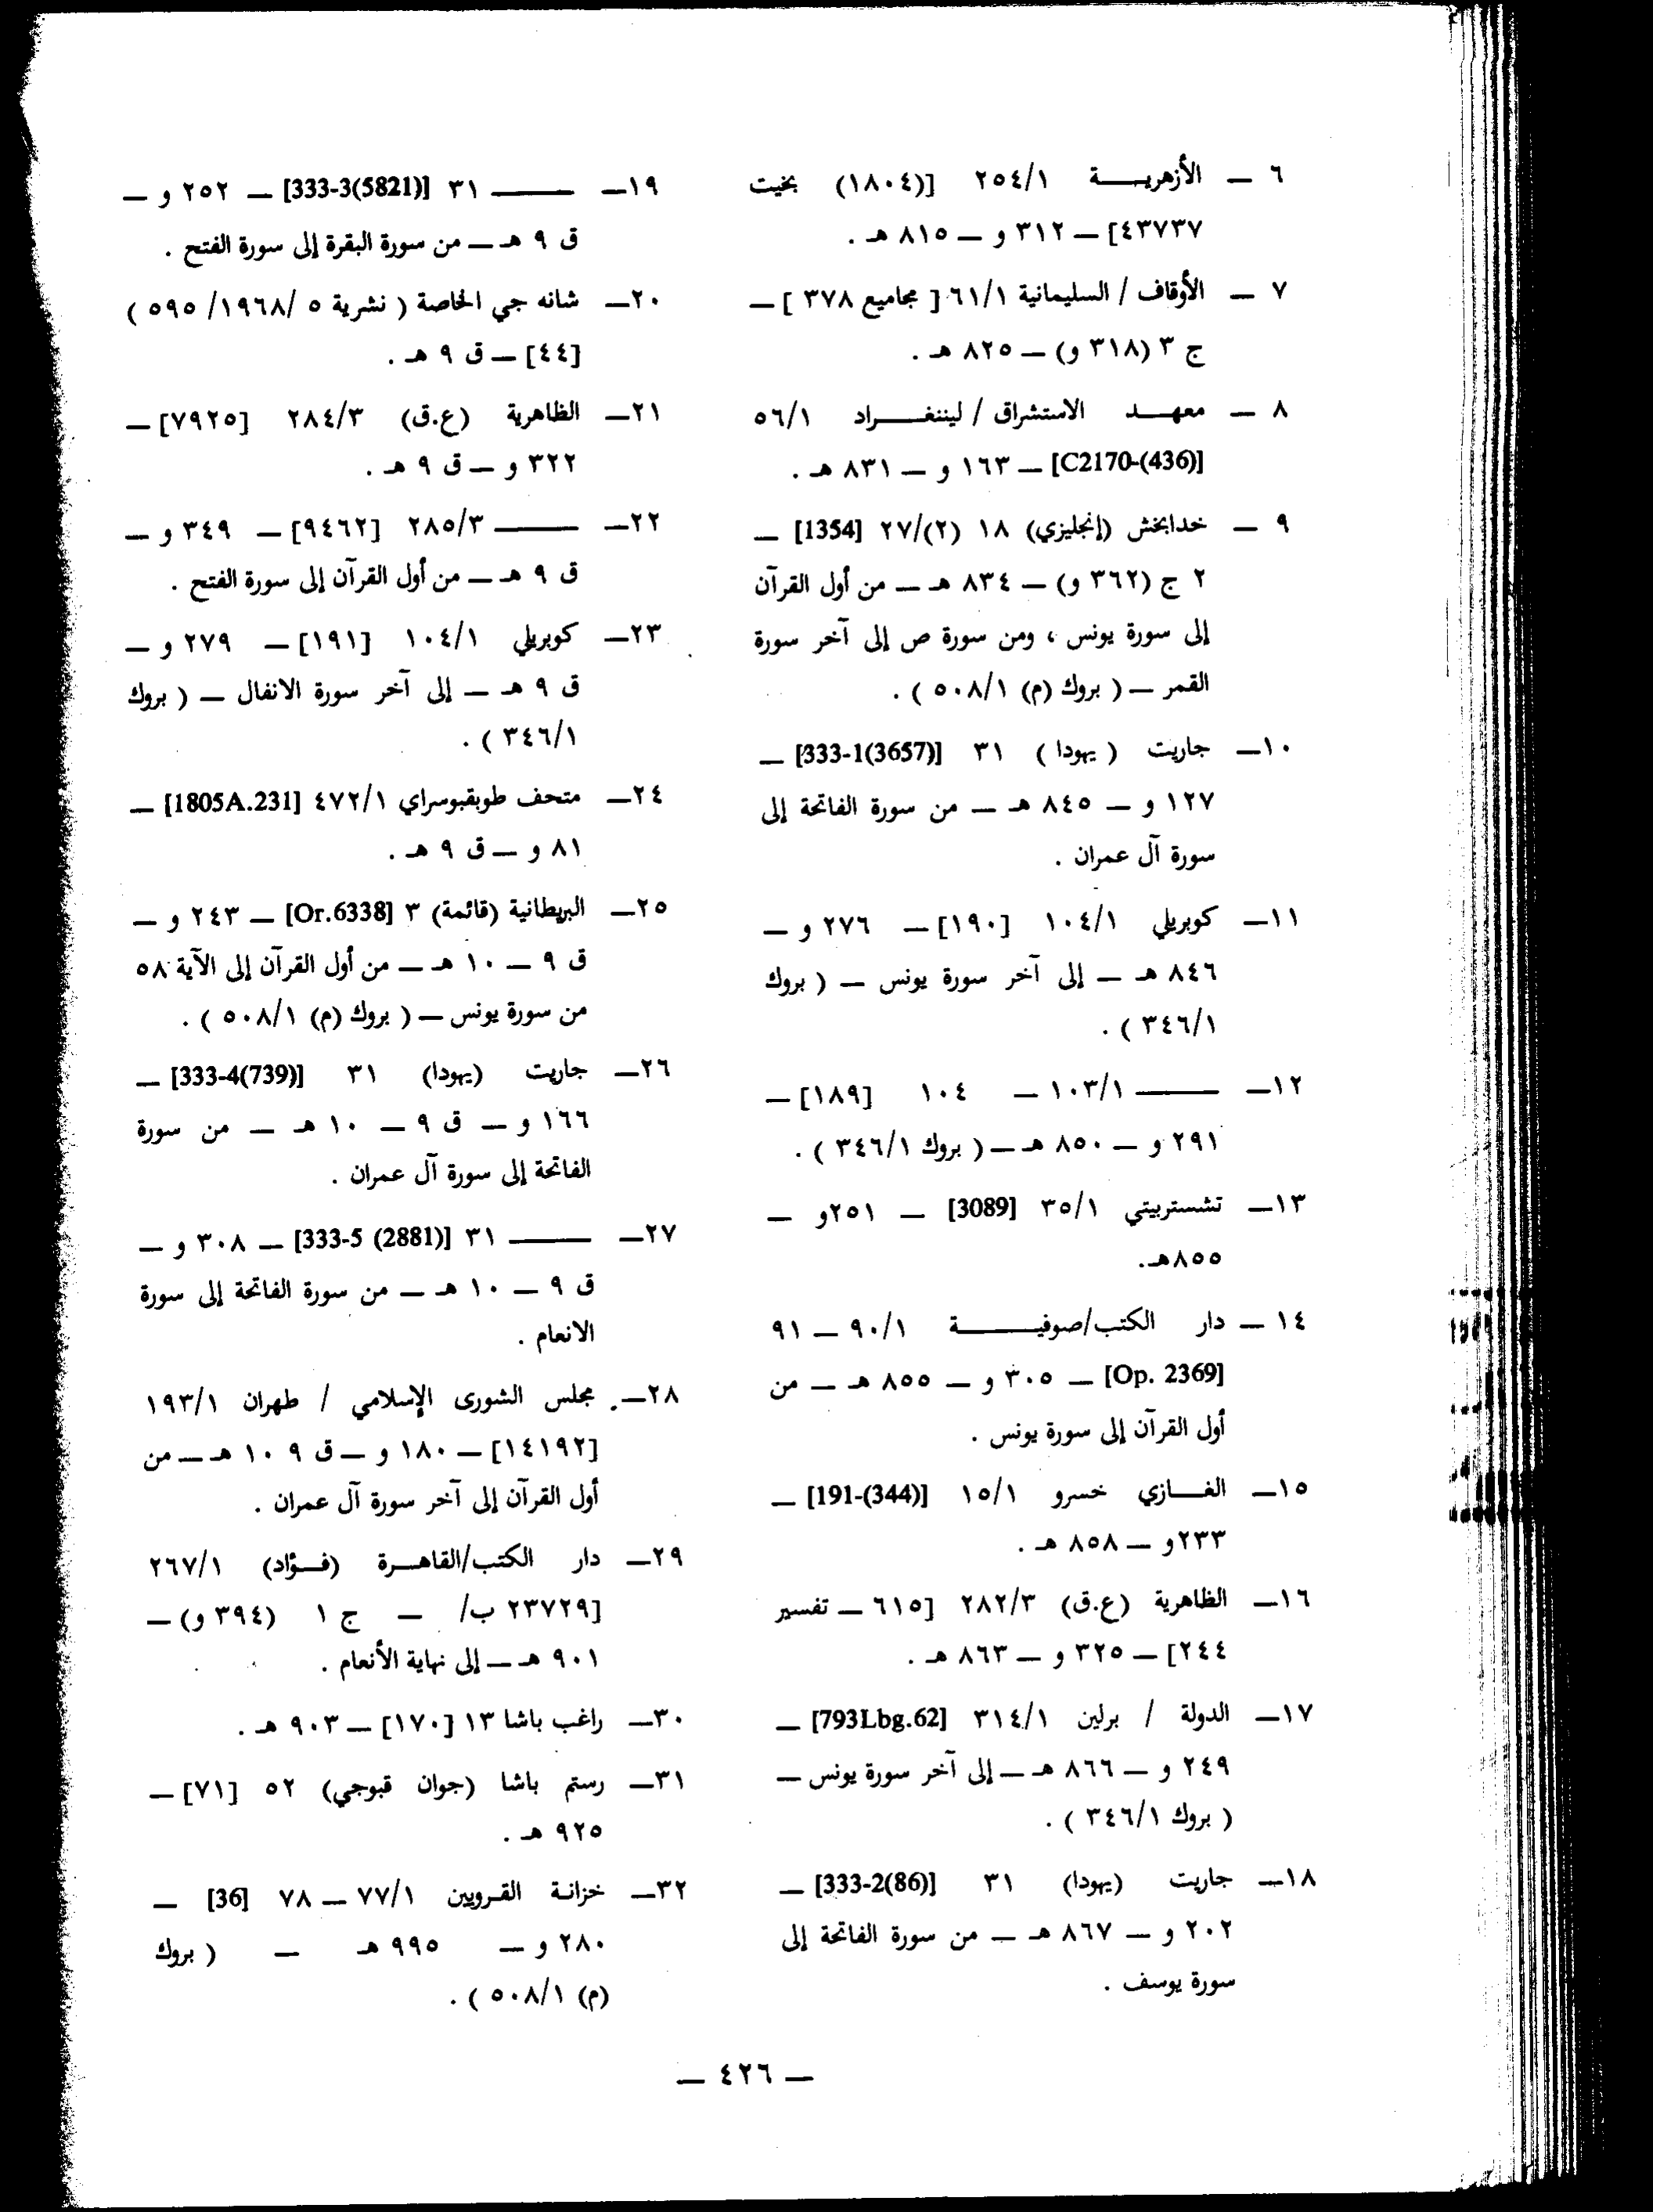 ٦ — الأزهريـــة ٢٥٤/١ [(١٨٠٤) بخيت
٤٣٧٣٧] — ٣١٢ و — ٨١٥ هـ .
٧ — الأوقاف / السليمانية ٦١/١ [ مجاميع ٣٧٨ ] —
ج ٣ (٣١٨ و) — ٨٢٥ هـ .
٨ — معهـــد الاستشراق / ليننغـــراد ٥٦/١
[C2170-(436)] — ١٦٣ و — ٨٣١ هـ .
٩ — خدابخش (إنجليزي) ١٨ (٢)/٢٧ [1354] —
٢ ج (٣٦٢ و) — ٨٣٤ هـ — من أول القرآن
إلى سورة يونس ، ومن سورة ص إلى آخر سورة
القمر — ( بروك (م) ٥٠٨/١ ) .
١٠— جاريت ( يهودا ) ٣١ [333-1(3657)] —
١٢٧ و — ٨٤٥ هـ — من سورة الفاتحة إلى
سورة آل عمران .
١١— كوبريلي ١٠٤/١ [١٩٠] — ٢٧٦ و —
٨٤٦ هـ — إلى آخر سورة يونس — ( بروك
٣٤٦/١ ) .
١٢— ——— ١٠٣/١ — ١٠٤ [١٨٩] —
٢٩١ و — ٨٥٠ هـ — ( بروك ٣٤٦/١ ) .
١٣— تشستربيتي ٣٥/١ [3089] — ٢٥١و —
٨٥٥هـ.
١٤ — دار الكتب/صوفيـــة ٩٠/١ — ٩١
[Op. 2369] — ٣٠٥ و — ٨٥٥ هـ — من
أول القرآن إلى سورة يونس .
١٥— الغـــازي خسرو ١٥/١ [191-(344)] —
٢٣٣و — ٨٥٨ هـ .
١٦— الظاهرية (ع.ق) ٢٨٢/٣ [٦١٥ — تفسير
٢٤٤] — ٣٢٥ و — ٨٦٣ هـ .
١٧— الدولة / برلين ٣١٤/١ [793Lbg.62] —
٢٤٩ و — ٨٦٦ هـ — إلى آخر سورة يونس —
( بروك ٣٤٦/١ ) .
١٨— جاريت (يهودا) ٣١ [333-2(86)] —
٢٠٢ و — ٨٦٧ هـ — من سورة الفاتحة إلى
سورة يوسف .
١٩— ——— ٣١ [333-3(5821)] — ٢٥٢ و —
ق ٩ هـ — من سورة البقرة إلى سورة الفتح .
٢٠— شانه جي الخاصة ( نشرية ٥ /١٩٦٨/ ٥٩٥ )
[٤٤] — ق ٩ هـ .
٢١— الظاهرية (ع.ق) ٢٨٤/٣ [٧٩٢٥] —
٣٢٢ و — ق ٩ هـ .
٢٢— ——— ٢٨٥/٣ [٩٤٦٢] — ٣٤٩ و —
ق ٩ هـ — من أول القرآن إلى سورة الفتح .
٢٣— كوبريلي ١٠٤/١ [١٩١] — ٢٧٩ و —
ق ٩ هـ — إلى آخر سورة الانفال — ( بروك
٣٤٦/١ ) .
٢٤— متحف طوبقبوسراي ٤٧٢/١ [1805A.231] —
٨١ و — ق ٩ هـ .
٢٥— البريطانية (قائمة) ٣ [Or.6338] — ٢٤٣ و —
ق ٩ — ١٠ هـ — من أول القرآن إلى الآية ٥٨
من سورة يونس — ( بروك (م) ٥٠٨/١ ) .
٢٦— جاريت (يهودا) ٣١ [333-4(739)] —
١٦٦ و — ق ٩ — ١٠ هـ — من سورة
الفاتحة إلى سورة آل عمران .
٢٧— ——— ٣١ [333-5 (2881)] — ٣٠٨ و —
ق ٩ — ١٠ هـ — من سورة الفاتحة إلى سورة
الانعام .
٢٨— مجلس الشورى الإسلامي / طهران ١٩٣/١
[١٤١٩٢] — ١٨٠ و — ق ٩ ١٠ هـ — من
أول القرآن إلى آخر سورة آل عمران .
٢٩— دار الكتب/القاهـــرة (فـــؤاد) ٢٦٧/١
[٢٣٧٢٩ ب/ — ج ١ (٣٩٤ و) —
٩٠١ هـ — إلى نهاية الأنعام .
٣٠— راغب باشا ١٣ [١٧٠] — ٩٠٣ هـ .
٣١— رستم باشا (جوان قبوجي) ٥٢ [٧١] —
٩٢٥ هـ .
٣٢— خزانـة القـرويين ٧٧/١ — ٧٨ [36] —
٢٨٠ و — ٩٩٥ هـ — ( بروك
(م) ٥٠٨/١ ) .
— ٤٢٦ —